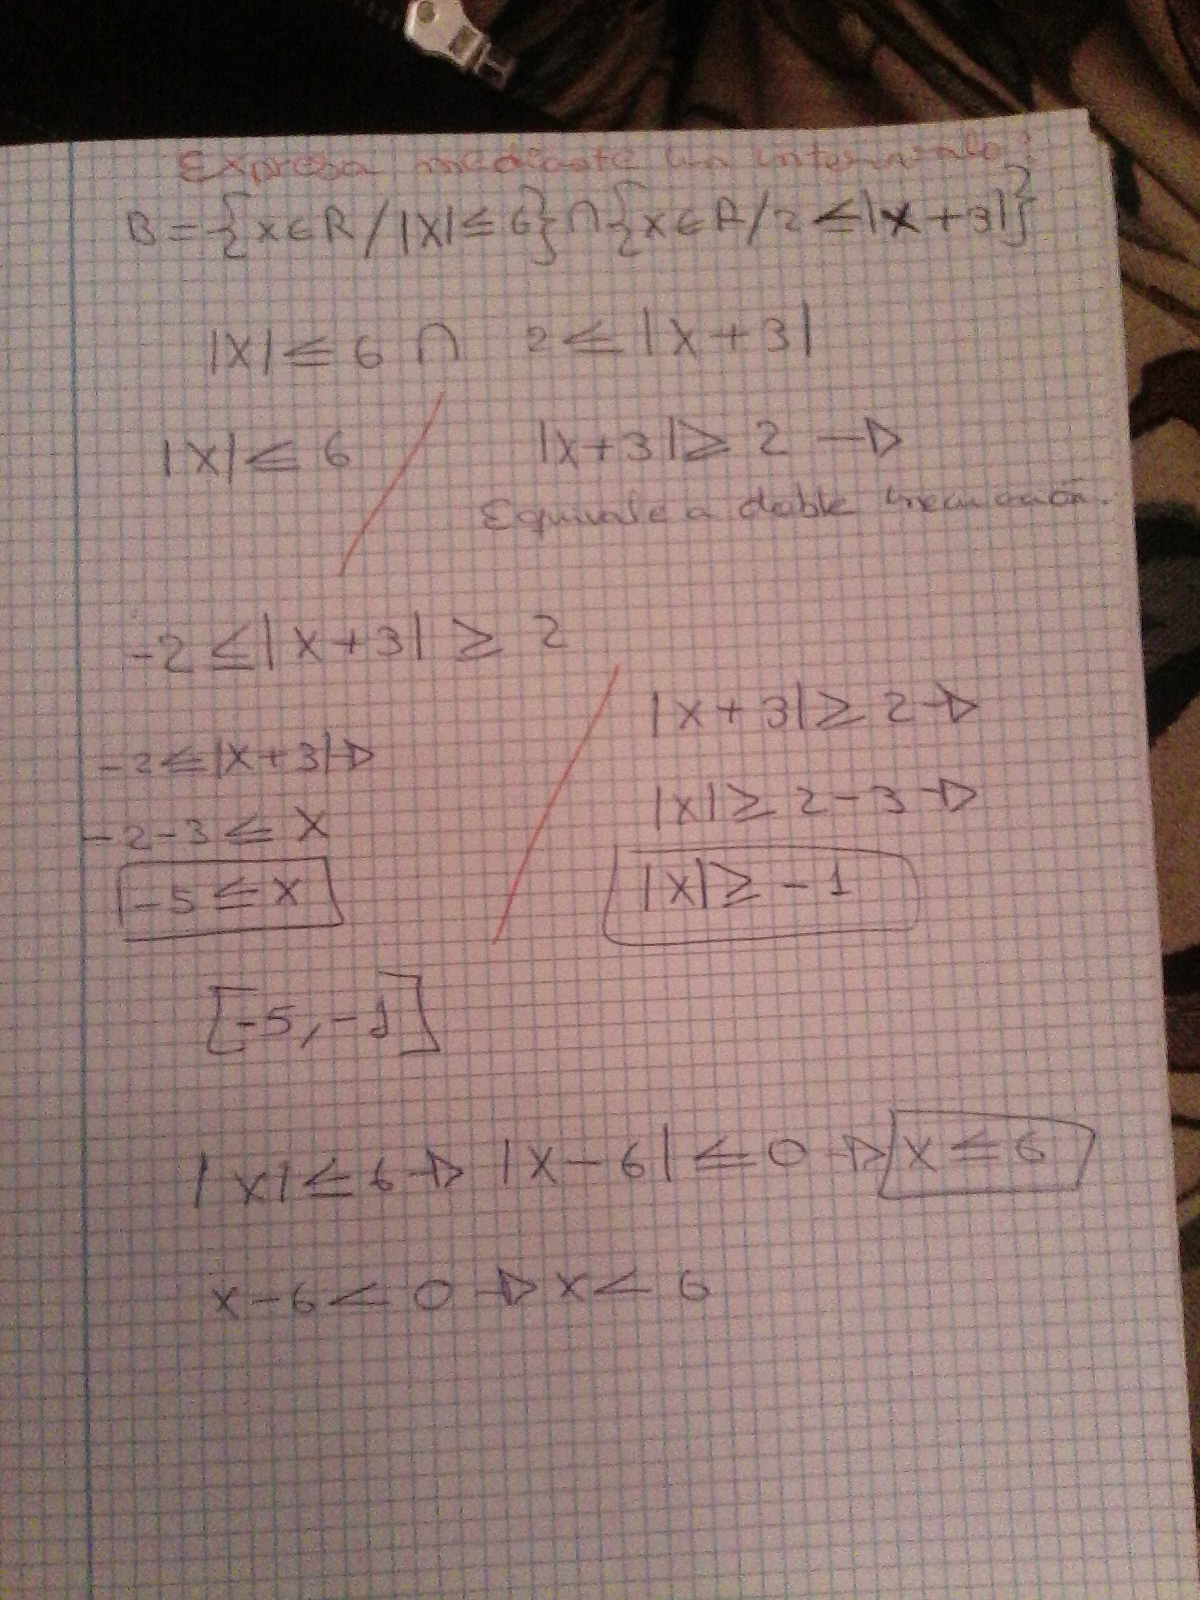 Expresa mediante un intervalo:
B = {x∈R / |x| ≤ 6} ∩ {x∈R / 2 ≤ |x + 3|}
|x| ≤ 6 ∩ 2 ≤ |x + 3|
|x| ≤ 6 / |x + 3| ≥ 2 →
Equivale a doble inecuación.
-2 ≤ |x + 3| ≥ 2
|x + 3| ≥ 2 →
-2 ≤ |x + 3| →
|x| ≥ 2 - 3 →
-2 - 3 ≤ x
-5 ≤ x / |x| ≥ -1
[-5, -1]
|x| ≤ 6 → |x - 6| ≤ 0 → x ≤ 6
x - 6 < 0 → x < 6